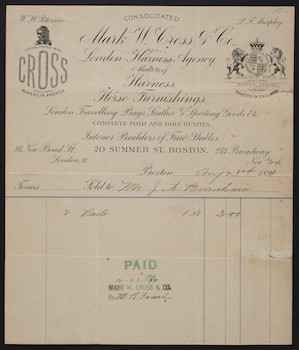 CONSOLIDATED
W. H. Peterson
P. F. Murphy
Mark W. Cross & Co.
London Harness Agency
Makers of
Harness
Horse Furnishings
CROSS
MAKERS IN AMERICA
MAKERS IN ENGLAND
London Travelling Bags Leather & Sporting Goods Etc
COMPLETE POLO AND GOLF OUTFITS.
Interior Builders of Fine Stables
97 New Bond St. London, W.
20 SUMMER ST. BOSTON.
253 Broadway New York
Boston,
Terms
Sold to Mr J A Burnham
2
PAID
MARK W. CROSS & CO.